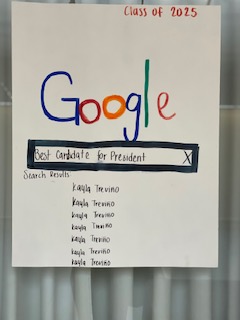 Class of 2025
Google
Best Candidate for President X
Search Results:
Kayla Trevino
Kayla Trevino
Kayla Trevino
Kayla Trevino
Kayla Trevino
Kayla Trevino
Kayla Trevino